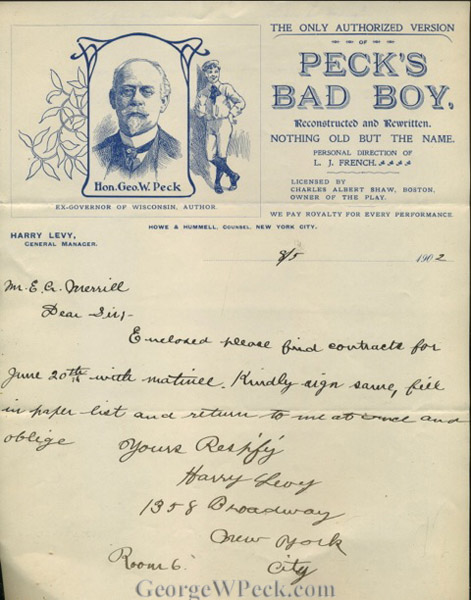 THE ONLY AUTHORIZED VERSION
OF
PECK'S
BAD BOY.
Reconstructed and Rewritten.
NOTHING OLD BUT THE NAME.
PERSONAL DIRECTION OF
L. J. FRENCH.
LICENSED BY
CHARLES ALBERT SHAW, BOSTON,
OWNER OF THE PLAY.
WE PAY ROYALTY FOR EVERY PERFORMANCE.
Hon. Geo. W. Peck
EX-GOVERNOR OF WISCONSIN, AUTHOR.
HOWE & HUMMELL, COUNSEL, NEW YORK CITY.
HARRY LEVY,
GENERAL MANAGER.
1902
Mr. E. G. Merrill
Dear Sir,-
Enclosed please find contracts for
June 20th with matinee. Kindly sign same, fill
in paper list and return to me at once and
oblige
Yours Respfy
Harry Levy
1358 Broadway
New York
City
Room 6
GeorgeWPeck.com